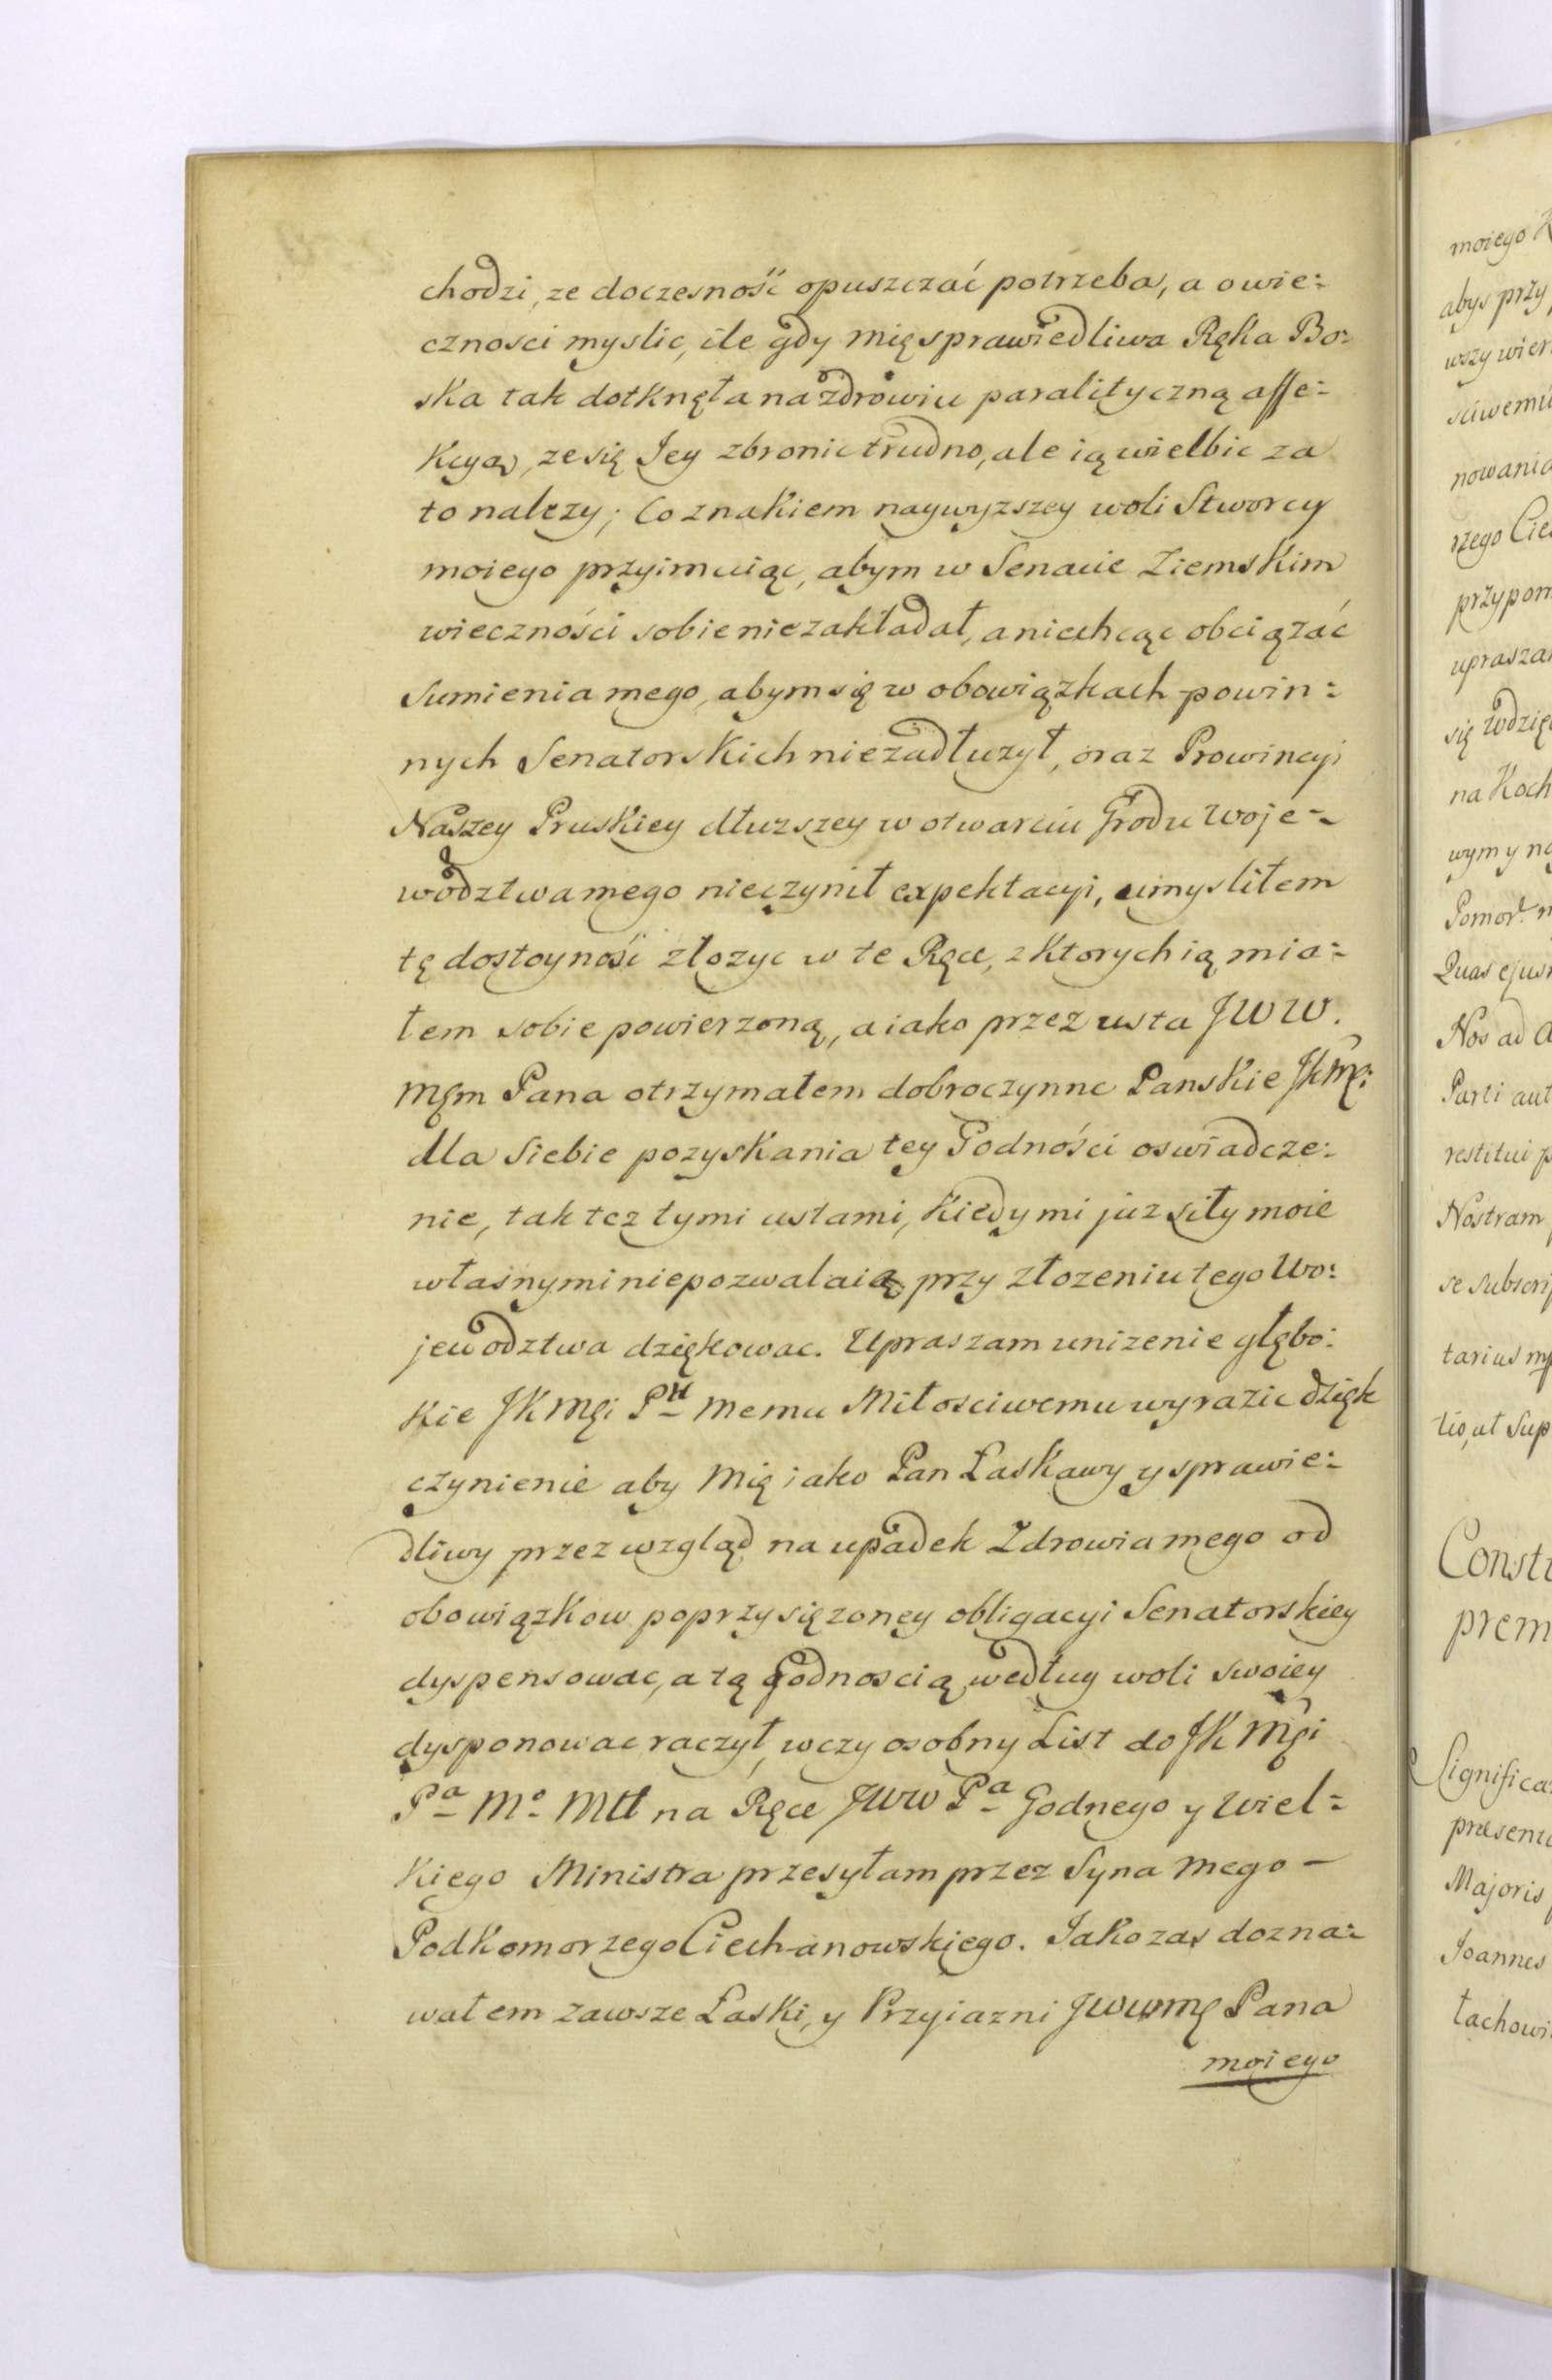 chodzi, ze doczesność opuszczać potrzeba, a o wie:
cznosci myslic, ile gdy mię sprawiedliwa Ręka Bo:
ska tak dotknęła na zdrowiu paralityczną affe:
kcyą, ze się Jey zbronic trudno, ale ią wielbic za
to nalezy; Co znakiem naywyzszey woli Stworcy
moiego przyimuiąc, abym w Senacie Ziemskim
wieczności sobie niezakładał, a niechcąc obciązać
Sumienia mego, abym się w obowiązkach powin:
nych Senatorskich niezadłuzył, oraz Prowincyi
Naszey Pruskiey dłuzszey w otwarciu Grodu Woje-
wodztwa mego nieczynił expektacyi, umysliłem
tę dostoyność złozyc w te Ręce, z ktorych ią mia:
łem sobie powierzoną, a iako przez usta JWW.
Mgm Pana otrzymałem dobroczynne Panskie JKMci
dla Siebie pozyskania tey Godności oswiadcze:
nie, tak tez tymi ustami, kiedy mi juz siły moie
własnymi niepozwalaią przy złozeniu tego Wo:
jewodztwa dziękowac. Upraszam unizenie głębo:
kie JKMci Pu Memu Miłosciwemu wyrazic dzięk
czynienie aby Mię iako Pan Łaskawy y sprawie:
dliwy przez wzgląd na upadek Zdrowia mego od
obowiązkow poprzysięzoney obligacyi Senatorskiey
dyspensowac, a tą godnoscią według woli swoiey
dysponowac raczył, w czy osobny List do JKMci
Pa Mo Mtt na Ręce JWW Pa Godnego y Wiel:
kiego Ministra przesyłam przez Syna mego -
Podkomorzego Ciechanowskiego. Jako zas dozna:
wałem zawsze Łaski, y Przyiazni JWWMg Pana
moiego
moiego
abys przy
wszy wier
sciwemu
nowania
rzego Cie
przypom
upraszam
się wdzię
na Koch
wym y na
Pomor.
Quas ejus
Nos ad a
Parti aut
restitui p
Nostram
se subscri
tarius mp
tio, ut sup
Consti
prem
Significa
præsent
Majoris
Joannes
łachowi